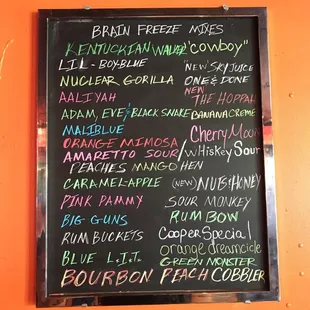 BRAIN FREEZE MIXES
KENTUCKIAN WALKER "COWBOY"
LIL-BOY-BLUE
NEW SKY JUICE
NUCLEAR GORILLA
ONE & DONE
AALIYAH
NEW THE HOPPA
ADAM, EVE & BLACK SNAKE
BANANA CREME
MALIBLUE
Cherry Moon
ORANGE MIMOSA
AMARETTO SOUR/WHISKEY SOUR
PEACHES MANGO HEN
CARAMEL-APPLE
(NEW) NUTS & HONEY
PINK PAMMY
SOUR MONKEY
BIG GUNS
RUM BOW
RUM BUCKETS
Cooper Special
BLUE L.I.T.
orange dreamcicle
GREEN MONSTER
BOURBON PEACH COBBLER